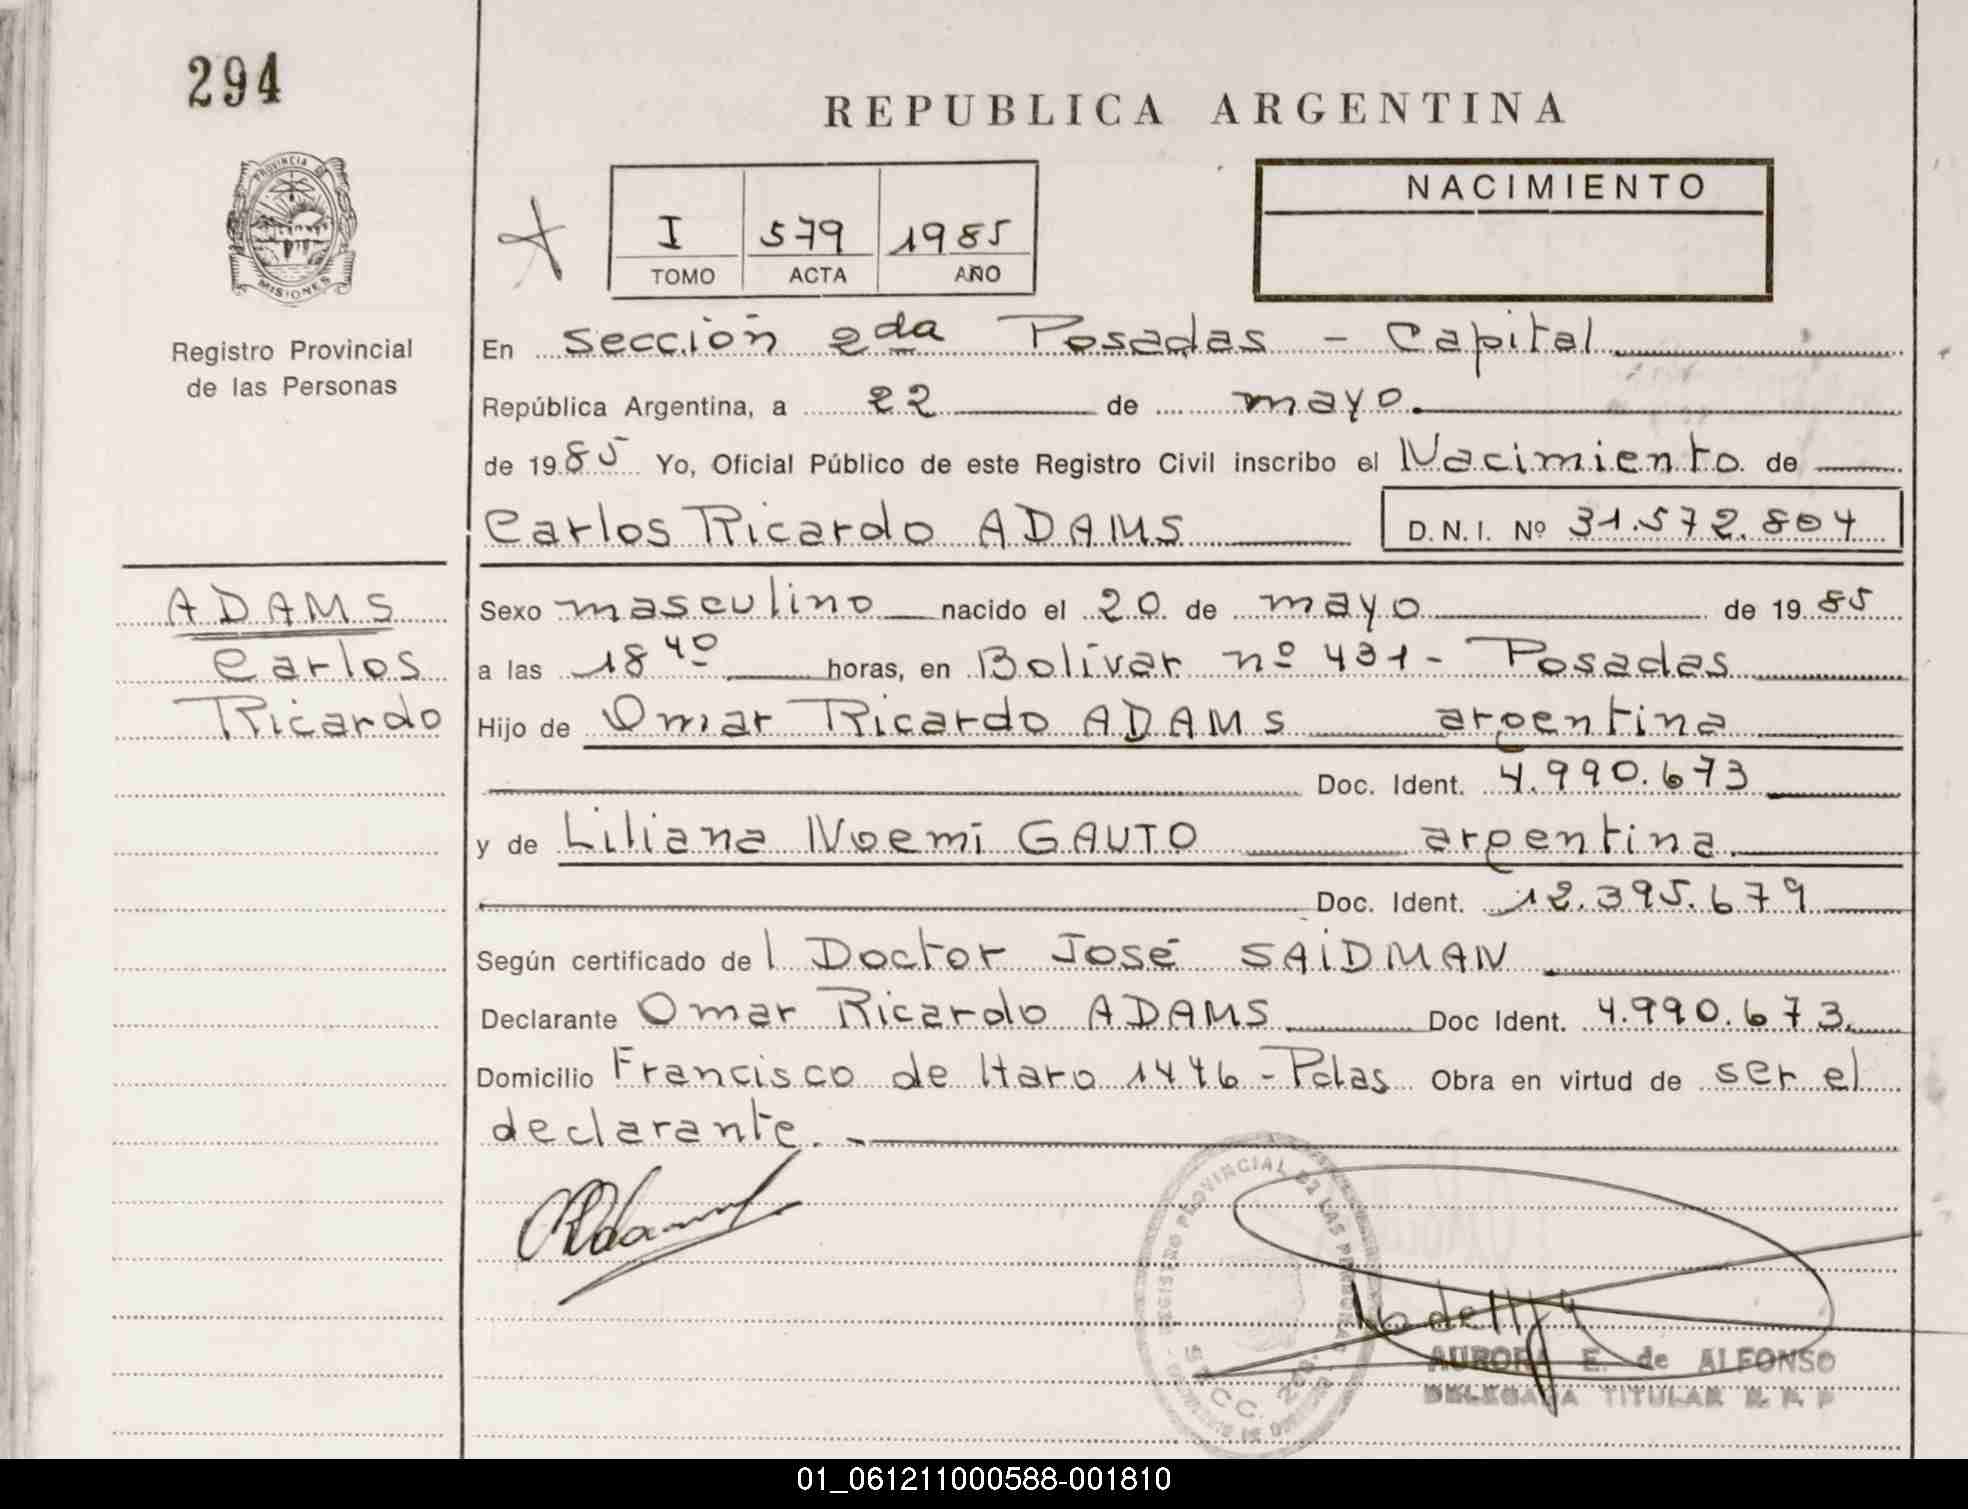 294
REPUBLICA ARGENTINA
PROVINCIA DE
MISIONES
Registro Provincial
de las Personas
NACIMIENTO
I 579 1985
TOMO ACTA AÑO
En sección 2da Posadas - Capital
República Argentina, a 22 de mayo.
de 1985 Yo, Oficial Público de este Registro Civil inscribo el Nacimiento de
Carlos Ricardo ADAMS D.N.I. Nº 31.572.804
ADAMS
Carlos
Ricardo
Sexo masculino nacido el 20 de mayo de 1985
a las 18 40 horas, en Bolívar nº 431 - Posadas
Hijo de Omar Ricardo ADAMS argentina
Doc. Ident. 4.990.673
y de Liliana Noemí GAUTO argentina.
Doc. Ident. 12.395.679
Según certificado del Doctor José SAIDMAN
Declarante Omar Ricardo ADAMS Doc Ident. 4.990.673.
Domicilio Francisco de Haro 1446 - Pdas Obra en virtud de ser el
declarante.
REGISTRO PROVINCIAL DE LAS PERSONAS
SECC. 2da.
AURORA E. de ALFONSO
DELEGADA TITULAR R. P. P
01_061211000588-001810